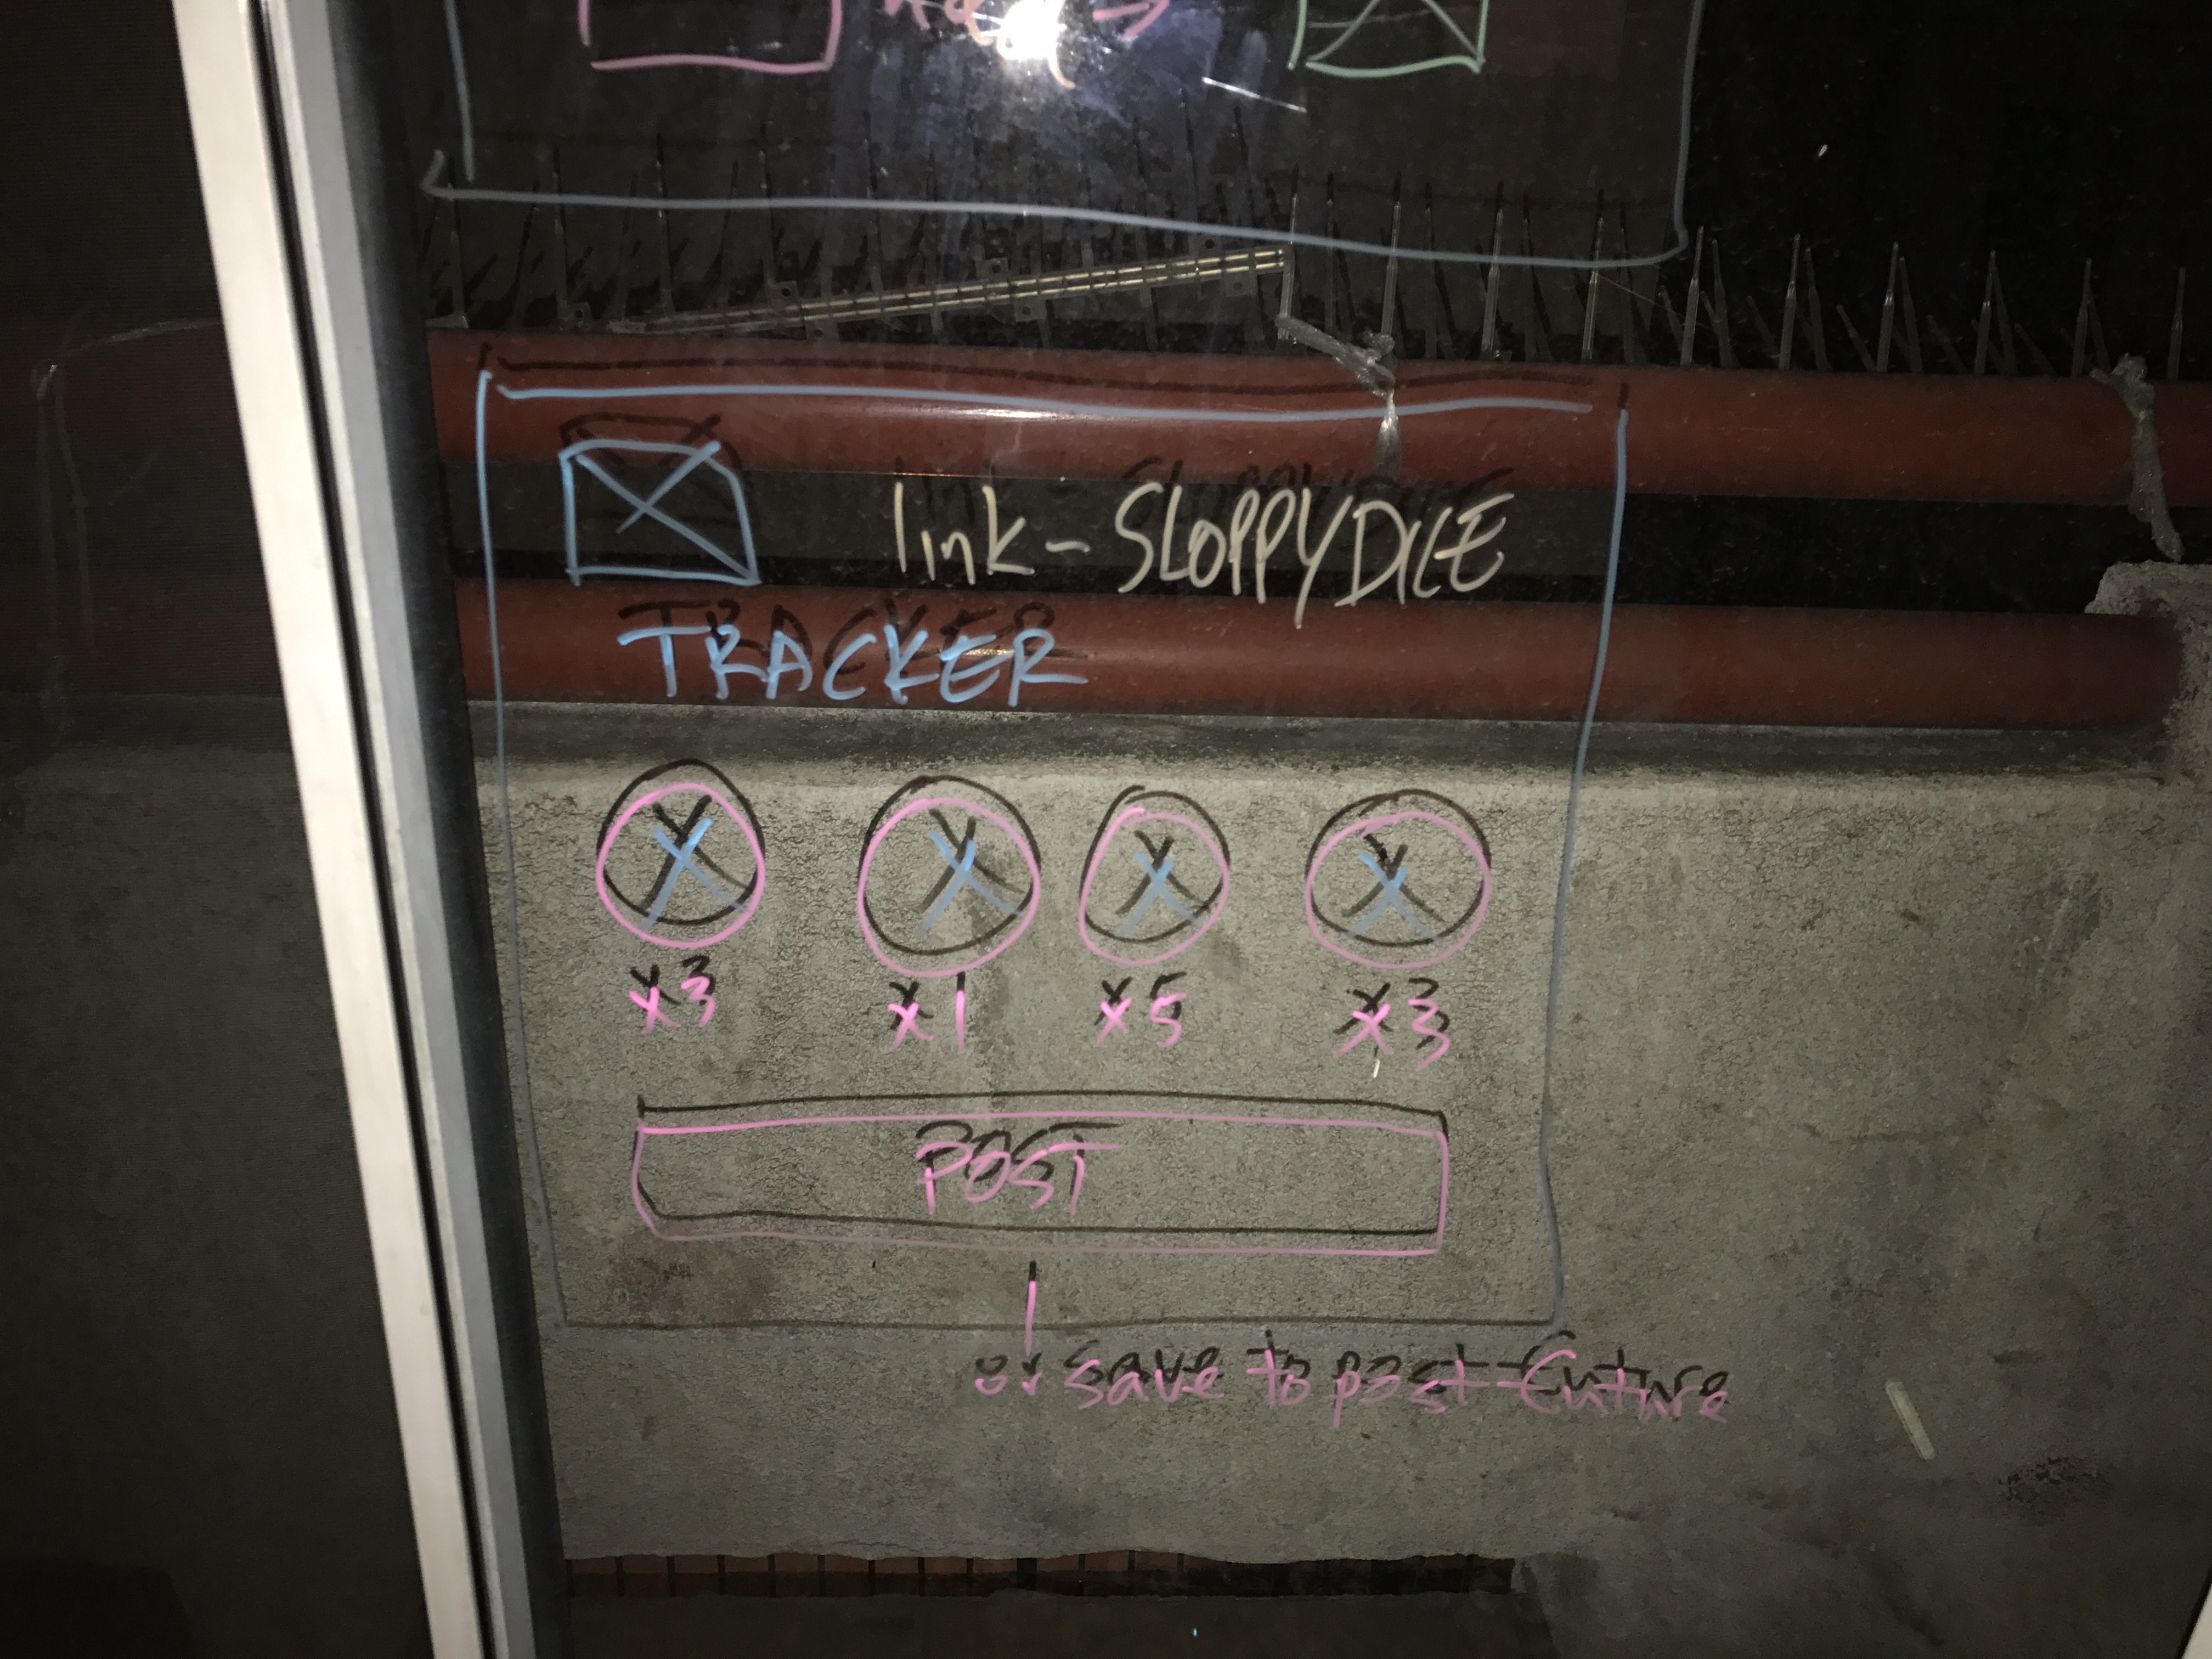 link - SLOPPYDICE
TRACKER
x3 x1 x5 x3
POST
or save to post future